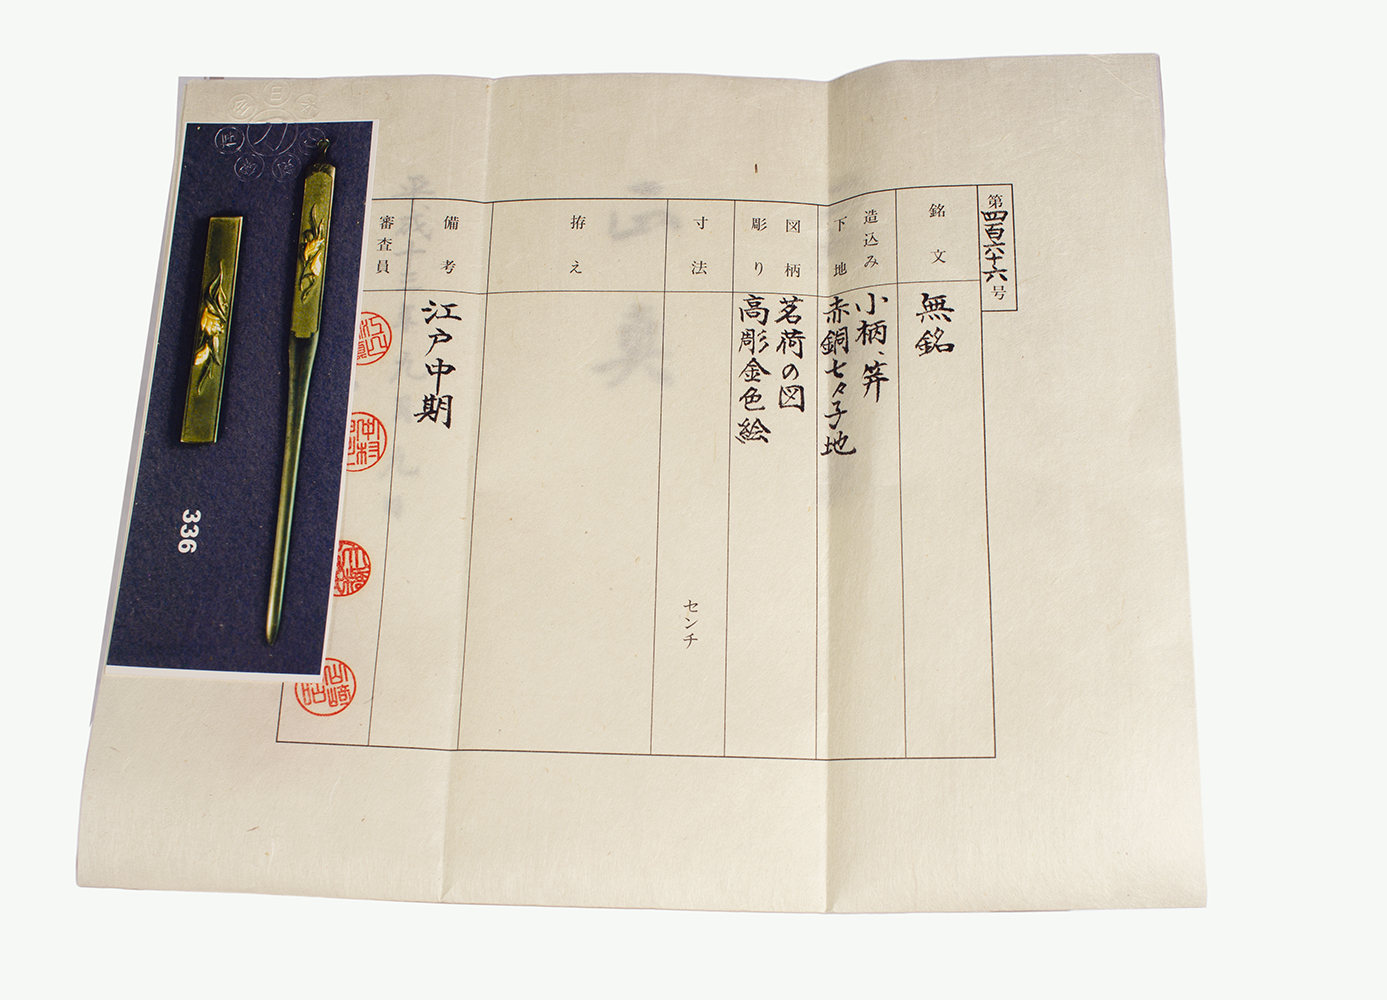 第四百六十六号
銘文
無銘
造込み
下地
小柄、笄
赤銅七々子地
図柄
彫り
茗荷の図
高彫金色絵
寸法
センチ
拵え
備考
江戸中期
審査員
336